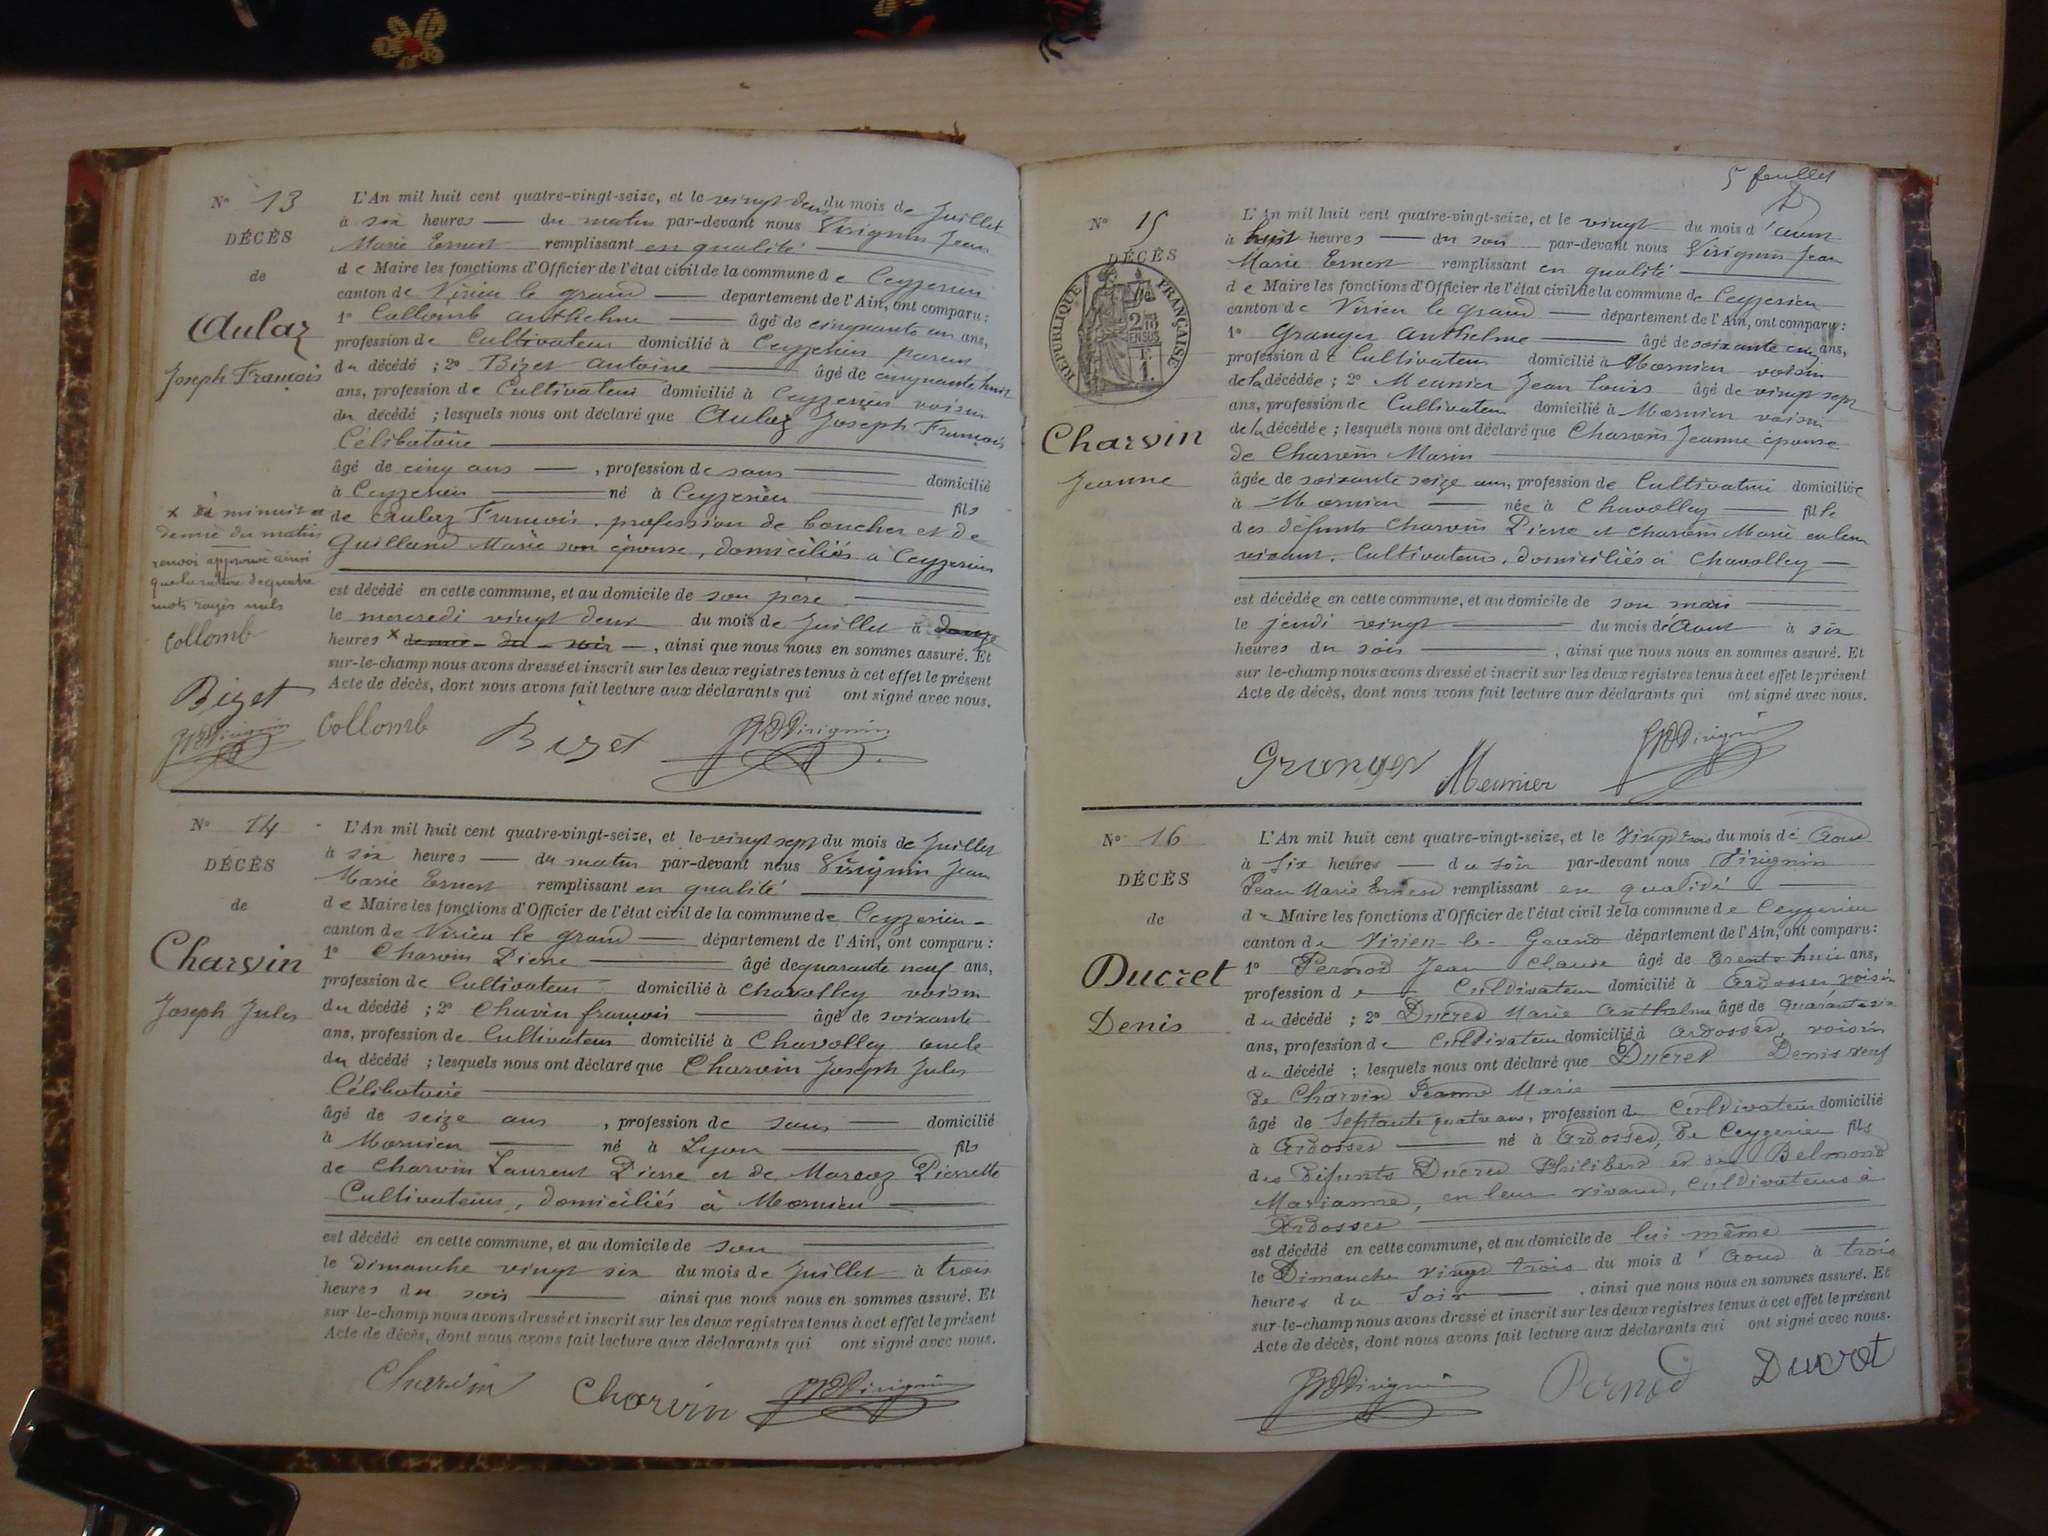 N° 13
DÉCÈS
de
Aulaz
Joseph François
L'An mil huit cent quatre-vingt-seize, et le vingt deux du mois de Juillet
à six heures — du matin par-devant nous Virignin Jean
Marie Ernest remplissant en qualité
de Maire les fonctions d'Officier de l'état civil de la commune de Ceyzerieu
canton de Virieu le grand — département de l'Ain, ont comparu :
1° Collomb Anthelme — âgé de cinquante un ans,
profession de Cultivateur domicilié à Ceyzerieu parent
du décédé ; 2° Bizet Antoine — âgé de cinquante huit
ans, profession de Cultivateur domicilié à Ceyzerieu voisin
du décédé ; lesquels nous ont déclaré que Aulaz Joseph François
Célibataire
âgé de cinq ans — , profession de sans — domicilié
à Ceyzerieu — né à Ceyzerieu — fils
de Aulaz François, profession de boucher et de
Guilland Marie son épouse, domiciliés à Ceyzerieu
est décédé en cette commune, et au domicile de son père
le mercredi vingt deux du mois de Juillet à douze
heures x demie du soir — , ainsi que nous nous en sommes assuré. Et
sur-le-champ nous avons dressé et inscrit sur les deux registres tenus à cet effet le présent
Acte de décès, dont nous avons fait lecture aux déclarants qui ont signé avec nous.
x à minuit et
demie du matin
renvoi approuvé ainsi
que la rature de quatre
mots rayés nuls
Collomb
Bizet
Collomb Bizet JM Virignin
N° 14
DÉCÈS
de
Charvin
Joseph Jules
L'An mil huit cent quatre-vingt-seize, et le vingt sept du mois de Juillet
à six heures — du matin par-devant nous Virignin Jean
Marie Ernest remplissant en qualité
de Maire les fonctions d'Officier de l'état civil de la commune de Ceyzerieu
canton de Virieu le grand — département de l'Ain, ont comparu :
1° Charvin Pierre — âgé de quarante neuf ans,
profession de Cultivateur domicilié à Chavolley voisin
du décédé ; 2° Chavin françois — âgé de soixante
ans, profession de Cultivateur domicilié à Chavolley oncle
du décédé ; lesquels nous ont déclaré que Charvin Joseph Jules
Célibataire
âgé de seize ans , profession de sans — domicilié
à Mornieu — né à Lyon — fils
de Charvin Laurent Pierre et de Marcoz Pierrette
Cultivateurs, domiciliés à Mornieu —
est décédé en cette commune, et au domicile de son
le Dimanche vingt six du mois de Juillet à trois
heures du soir — ainsi que nous nous en sommes assuré. Et
sur-le-champ nous avons dressé et inscrit sur les deux registres tenus à cet effet le présent
Acte de décès, dont nous avons fait lecture aux déclarants qui ont signé avec nous.
Charvin Charvin JM Virignin
5 feuillet
N° 15
DÉCÈS
RÉPUBLIQUE FRANÇAISE
2/10 EN SUS
Charvin
Jeanne
L'An mil huit cent quatre-vingt-seize, et le vingt du mois d'Aout
à huit heures — du soir par-devant nous Virignin Jean
Marie Ernest remplissant en qualité
de Maire les fonctions d'Officier de l'état civil de la commune de Ceyzerieu
canton de Virieu le grand — département de l'Ain, ont comparu :
1° Granger Anthelme — âgé de soixante cinq ans,
profession de Cultivateur domicilié à Mornieu voisin
de la décédée ; 2° Meunier Jean louis âgé de vingt sept
ans, profession de Cultivateur domicilié à Mornieu voisin
de la décédée ; lesquels nous ont déclaré que Charvin Jeanne épouse
de Charvin Marin
âgée de soixante seize ans, profession de Cultivatrice domiciliée
à Mornieu — née à Chavolley — fille
des défunts Charvin Pierre et Charvin Marie en leur
vivant, Cultivateurs, domiciliés à Chavolley —
est décédée en cette commune, et au domicile de son mari
le jeudi vingt — du mois d'Aout à six
heures du soir — , ainsi que nous nous en sommes assuré. Et
sur-le-champ nous avons dressé et inscrit sur les deux registres tenus à cet effet le présent
Acte de décès, dont nous avons fait lecture aux déclarants qui ont signé avec nous.
Granger Meunier JM Virignin
N° 16
DÉCÈS
de
Ducret
Denis
L'An mil huit cent quatre-vingt-seize, et le vingt trois du mois de Aout
à six heures — du soir par-devant nous Virignin
Jean Marie Ernest remplissant en qualité
de Maire les fonctions d'Officier de l'état civil de la commune de Ceyzerieu
canton de Virieu-le-Grand département de l'Ain, ont comparu :
1° Pernod Jean Claude âgé de trente huit ans,
profession de Cultivateur domicilié à Ardosset voisin
du décédé ; 2° Ducret Marie Anthelme âgé de quarante six
ans, profession de Cultivateur domicilié à Ardosset, voisin
du décédé ; lesquels nous ont déclaré que Ducret Denis veuf
de Charvin Jeanne Marie
âgé de septante quatre ans, profession de Cultivateur domicilié
à Ardosset — né à Ardosset, de Ceyzerieu fils
des défunts Ducret Philibert et de Belmond
Marianne, en leur vivant, Cultivateurs à
Ardosset
est décédé en cette commune, et au domicile de lui même
le Dimanche vingt trois du mois d'Aout à trois
heures du soir — , ainsi que nous nous en sommes assuré. Et
sur-le-champ nous avons dressé et inscrit sur les deux registres tenus à cet effet le présent
Acte de décès, dont nous avons fait lecture aux déclarants qui ont signé avec nous.
JM Virignin Pernod Ducret